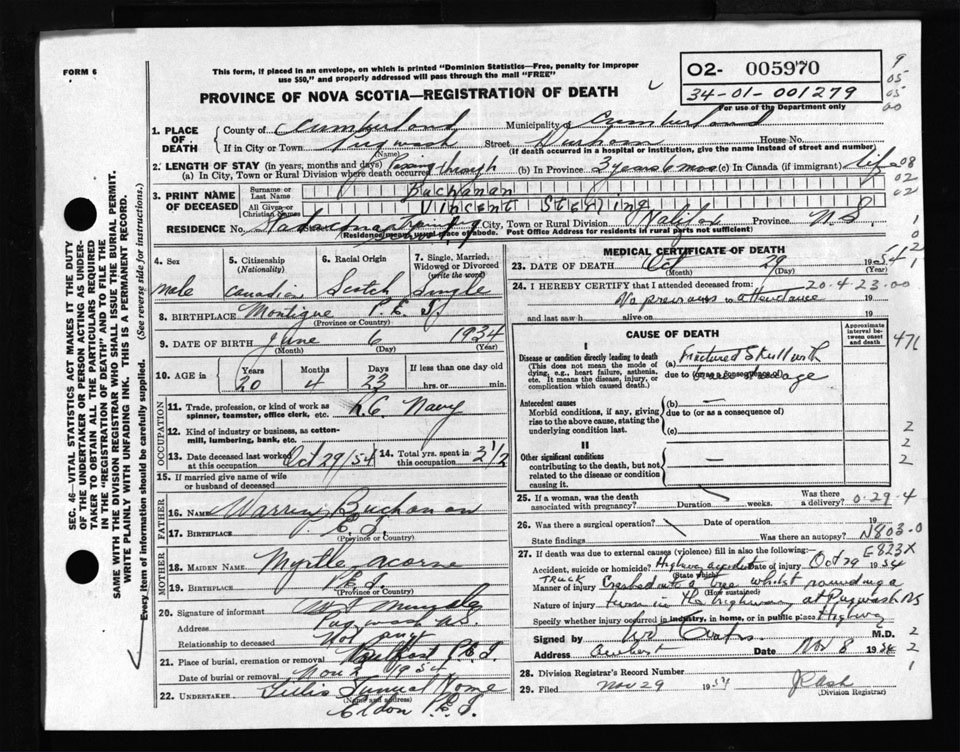 FORM 6
This form, if placed in an envelope, on which is printed "Dominion Statistics—Free, penalty for improper
use $50," and properly addressed will pass through the mail "FREE"
PROVINCE OF NOVA SCOTIA—REGISTRATION OF DEATH
02- 005970
34-01-001279
For use of the Department only
9
05
05
00
1. PLACE OF DEATH
County of Cumberland Municipality of Cumberland
If in City or Town Pugwash Street Durham House No.
(Name) (If death occurred in a hospital or institution, give the name instead of street and number)
2. LENGTH OF STAY (in years, months and days)
(a) In City, Town or Rural Division where death occurred Passing through (b) In Province 3 years 6 mos (c) In Canada (if immigrant) life
08
02
02
3. PRINT NAME OF DECEASED
Surname or Last Name Buchanan
All Given or Christian Names Vincent Sterling
RESIDENCE No. City, Town or Rural Division Halifax Province N.S
(Residence means usual place of abode. Post Office Address for residents in rural parts not sufficient)
SEC. 46—VITAL STATISTICS ACT MAKES IT THE DUTY
OF THE UNDERTAKER OR PERSON ACTING AS UNDER-
TAKER TO OBTAIN ALL THE PARTICULARS REQUIRED
IN THE "REGISTRATION OF DEATH" AND TO FILE THE
SAME WITH THE DIVISION REGISTRAR WHO SHALL ISSUE THE BURIAL PERMIT.
WRITE PLAINLY WITH UNFADING INK. THIS IS A PERMANENT RECORD.
Every item of information should be carefully supplied. (See reverse side for instructions.)
4. Sex
male
5. Citizenship
(Nationality)
Canadian
6. Racial Origin
Scotch
7. Single, Married,
Widowed or Divorced
(write the word)
Single
8. BIRTHPLACE Montigue P.E.I
(Province or Country)
9. DATE OF BIRTH June 6 1934
(Month) (Day) (Year)
10. AGE in
Years Months Days If less than one day old
20 4 23 hrs. or min.
OCCUPATION
11. Trade, profession, or kind of work as
spinner, teamster, office clerk, etc. Navy
12. Kind of industry or business, as cotton-
mill, lumbering, bank, etc.
13. Date deceased last worked
at this occupation Oct 29/54
14. Total yrs. spent in
this occupation 3 1/2
15. If married give name of wife
or husband of deceased
FATHER
16. NAME Buchanan
17. BIRTHPLACE P.E.I
(Province or Country)
MOTHER
18. MAIDEN NAME Myrtle Acorn
19. BIRTHPLACE P.E.I.
(Province or Country)
20. Signature of informant
Address Pugwash N.S.
Relationship to deceased Not any
21. Place of burial, cremation or removal P.E.I
Date of burial or removal Nov 2 1954
22. UNDERTAKER Funeral Home
(Name and address)
Eldon P.E.I.
MEDICAL CERTIFICATE OF DEATH
23. DATE OF DEATH Oct 29 1954
(Month) (Day) (Year)
24. I HEREBY CERTIFY that I attended deceased from: 20-4-23-00
No previous attendance 19
and last saw h alive on 19
CAUSE OF DEATH
Approximate
interval be-
tween onset
and death
I
Disease or condition directly leading to death
(This does not mean the mode of
dying, e.g., heart failure, asthenia,
etc. It means the disease, injury, or
complication which caused death.)
(a) Fractured Skull with
due to (or as a consequence of)
Antecedent causes
Morbid conditions, if any, giving
rise to the above cause, stating the
underlying condition last.
(b) —
due to (or as a consequence of)
(c)
II
Other significant conditions
contributing to the death, but not
related to the disease or condition
causing it.
—
25. If a woman, was the death
associated with pregnancy? Duration weeks. Was there
a delivery? 0-29-4
26. Was there a surgical operation? Date of operation 19
State findings Was there an autopsy? N803-0
27. If death was due to external causes (violence) fill in also the following:— E823X
Accident, suicide or homicide? Highway accident Date of injury Oct 29 1954
(State which)
TRUCK
Manner of injury Crashed into a tree whilst rounding a
(How sustained)
Nature of injury turn in the highway at Pugwash NS
Specify whether injury occurred in industry, in home, or in public place Highway
Signed by M.D.
Address Amherst Date Nov 8 1954
28. Division Registrar's Record Number
29. Filed Nov 29 1954
(Division Registrar)